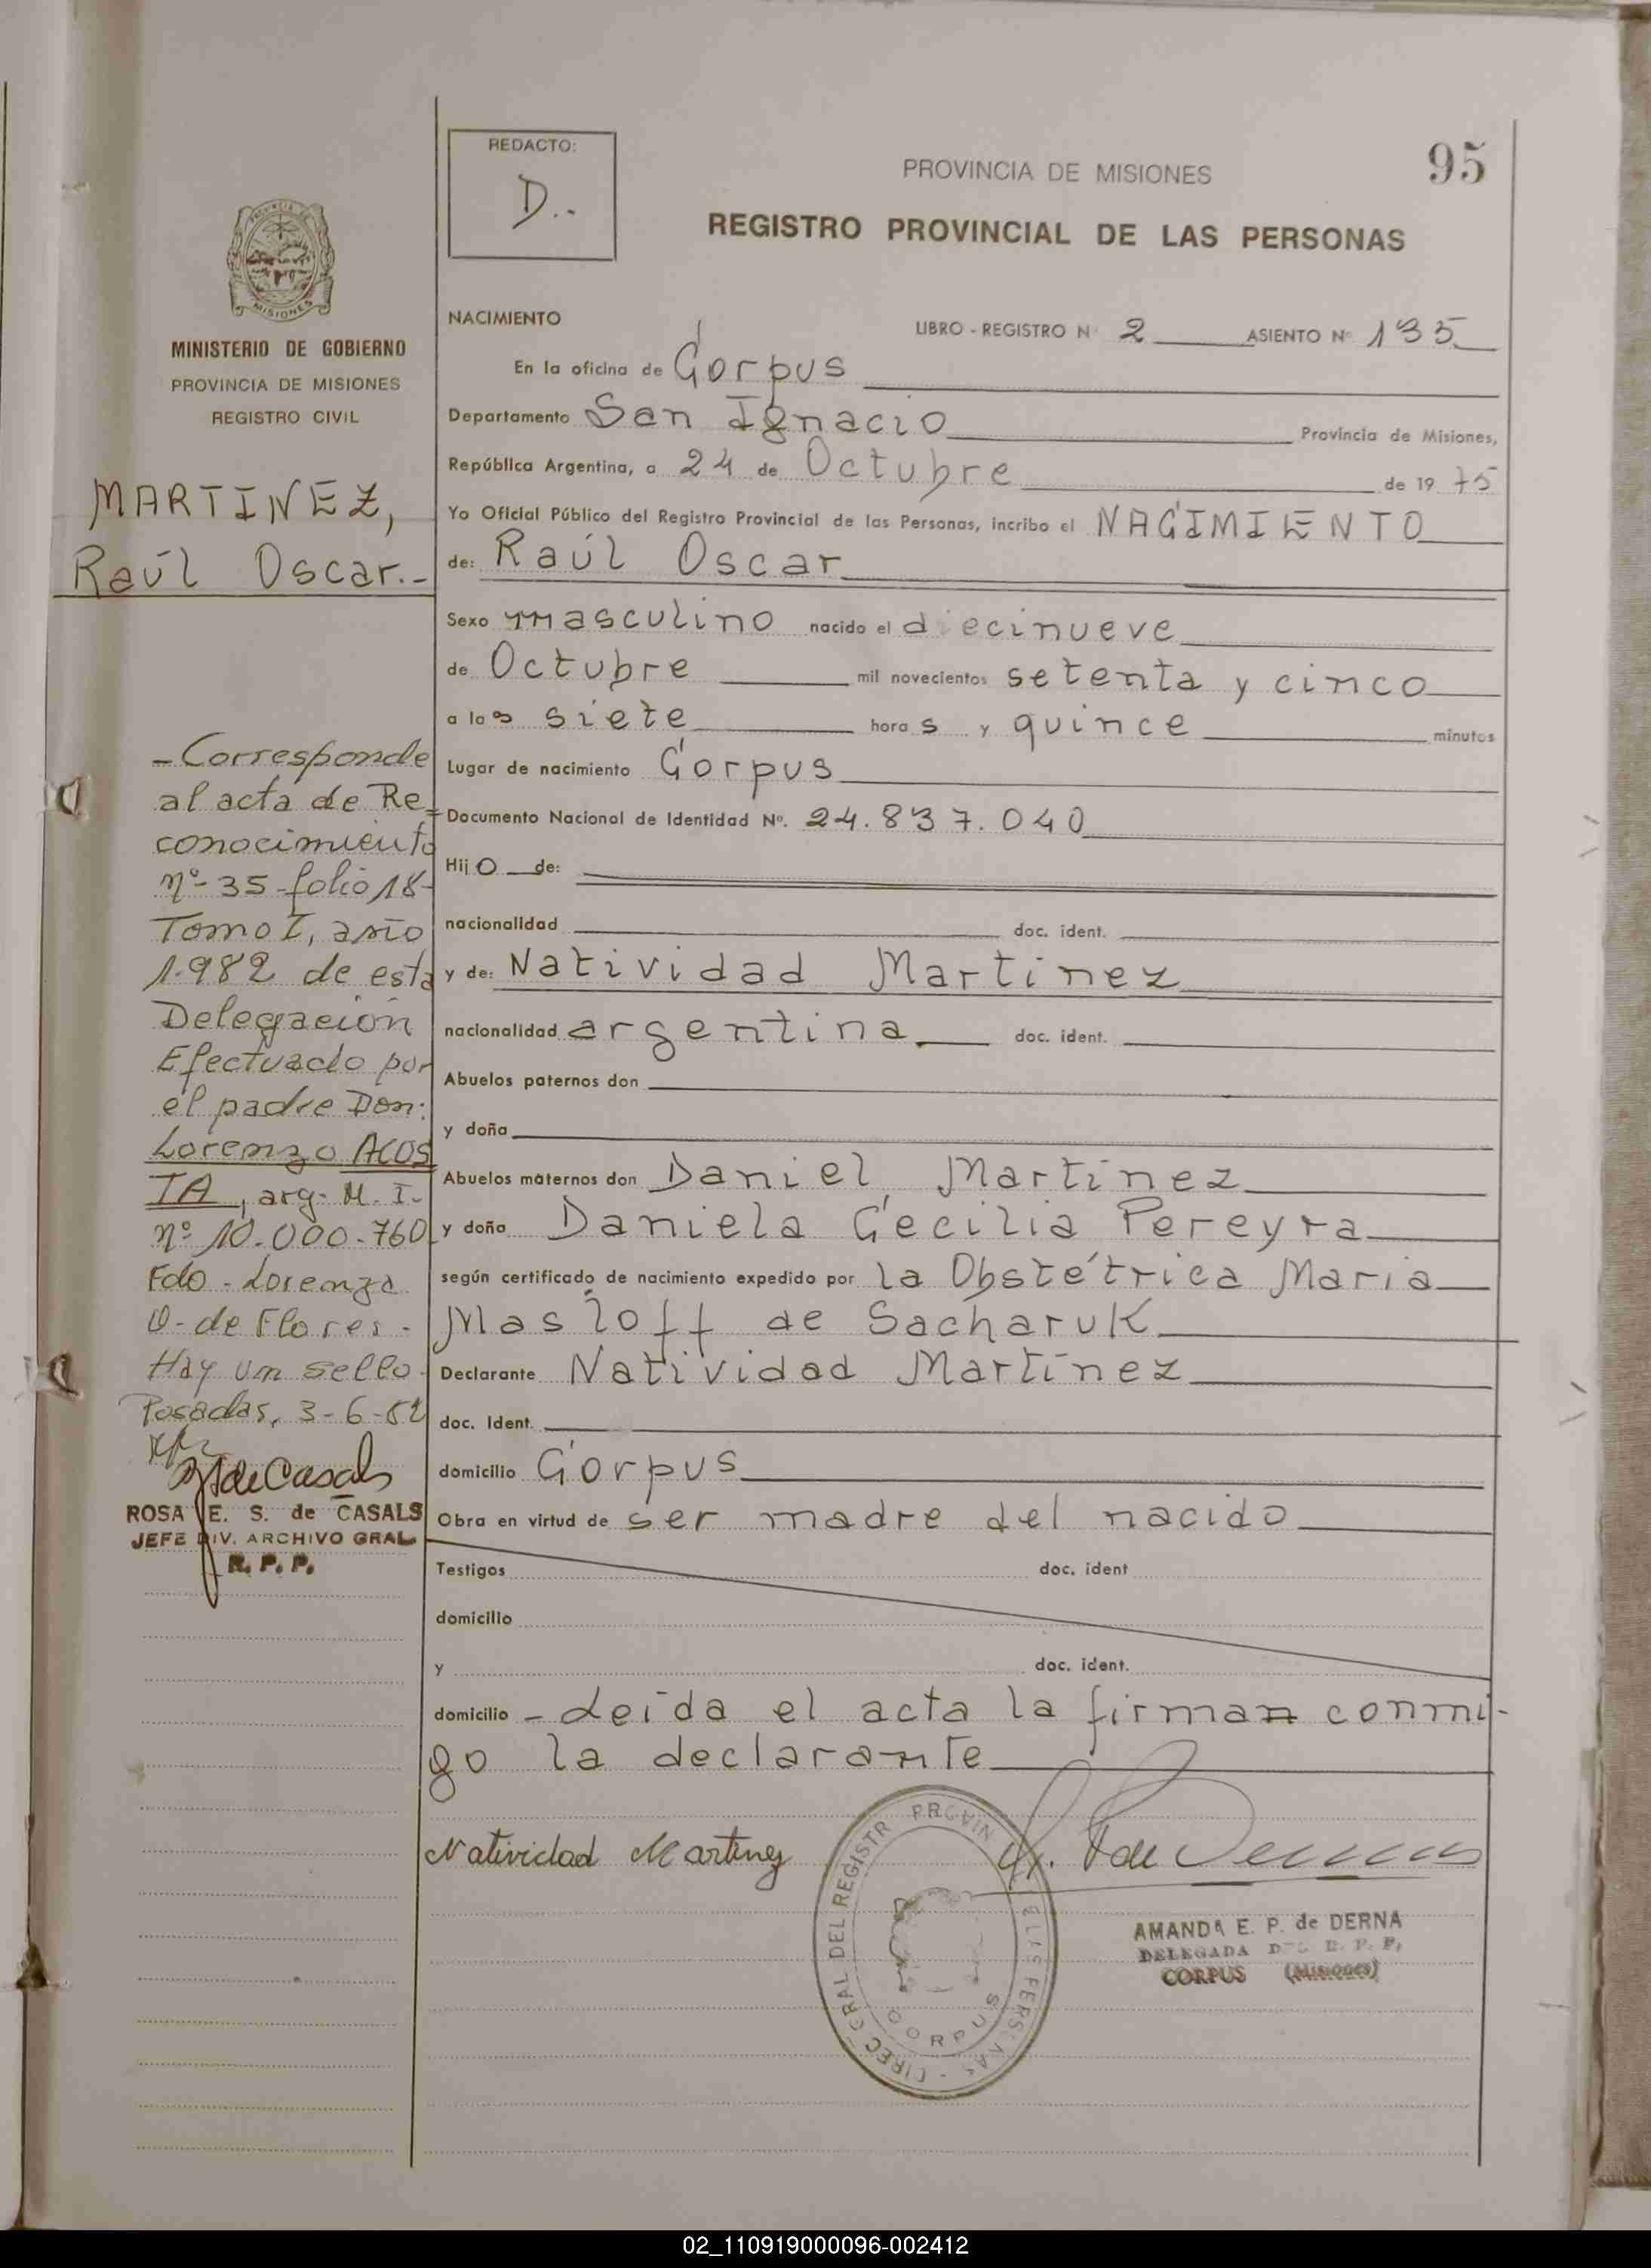 REDACTO:
D..
95
PROVINCIA DE MISIONES
REGISTRO PROVINCIAL DE LAS PERSONAS
MISIONES
MINISTERIO DE GOBIERNO
PROVINCIA DE MISIONES
REGISTRO CIVIL
MARTINEZ,
Raúl Oscar.-
- Corresponde
al acta de Re=
conocimiento
nº- 35-folio 18-
Tomo I, año
1.982 de esta
Delegación
Efectuado por
el padre Don:
Lorenzo ACOS
TA, arg. M. I.
nº 10.000.760
Fdo - Lorenza
O. de Flores -
Hay un sello -
Posadas, 3-6-82
ROSA E. S. de CASALS
JEFE DIV. ARCHIVO GRAL
R. P. P.
NACIMIENTO
LIBRO - REGISTRO Nº 2 ASIENTO Nº 135
En la oficina de Corpus
Departamento San Ignacio Provincia de Misiones,
República Argentina, a 24 de Octubre de 19 75
Yo Oficial Público del Registro Provincial de las Personas, incribo el NACIMIENTO
de: Raúl Oscar
Sexo masculino nacido el diecinueve
de Octubre mil novecientos setenta y cinco
a las siete horas y quince minutos
Lugar de nacimiento Corpus
Documento Nacional de Identidad Nº. 24.837.040
Hijo de:
nacionalidad doc. ident.
y de: Natividad Martinez
nacionalidad argentina. doc. ident.
Abuelos paternos don
y doña
Abuelos maternos don Daniel Martínez
y doña Daniela Cecilia Pereyra
según certificado de nacimiento expedido por la Obstétrica Maria
Masloff de Sacharuk
Declarante Natividad Martínez
doc. Ident.
domicilio Corpus
Obra en virtud de ser madre del nacido
Testigos doc. ident
domicilio
y doc. ident.
domicilio - Leída el acta la firman conmi-
go la declarante
Natividad Martinez
CORPUS
AMANDA E. P. de DERNA
DELEGADA DEL R. P. P.
CORPUS (Misiones)
02_110919000096-002412